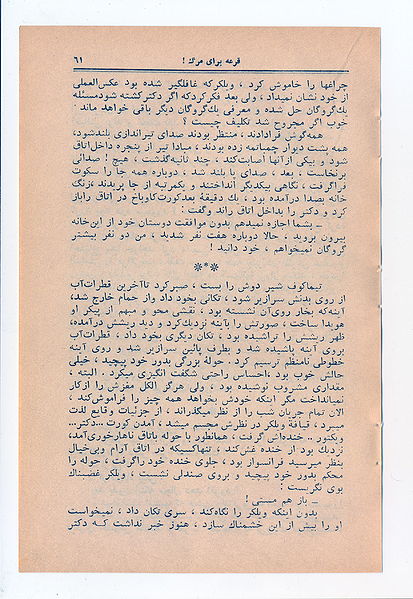 قرعه برای مرگ ! ۶۱
چراغها را خاموش کرد ، ویلکرکه غافلگیر شده بود عکس‌العملی
از خود نشان نمیداد ، ولی بعد فکر کرد که اگر دکتر کشته شود مسئله
یك گروگان حل شده و معرفی یك گروگان دیگر باقی خواهد ماند
خوب اگر مجروح شد تکلیف چیست ؟
همه گوش فرا دادند ، منتظر بودند صدای تیراندازی بلند شود،
همه پشت دیوار چمباتمه زده بودند ، مبادا تیر از پنجره داخل اتاق
شود و بیکی از آنها اصابت کند ، چند ثانیه گذشت ، هیچ ! صدائی
برنخاست ، بعد ، صدای پا بلند شد ، دوباره همه جا را سکوت
فرا گرفت ، نگاهی بیکدیگر انداختند و یکمرتبه از جا پریدند ، زنگ
خانه بصدا درآمده بود ، یك دقیقهٔ بعد کورت کاوباخ در اتاق را باز
کرد و دکتر را بداخل اتاق راند وگفت :
ـ بشما اجازه نمیدهم بدون موافقت دوستان خود از این خانه
بیرون بروید ، حالا دوباره هفت نفر شدید ، من دو نفر بیشتر
گروگان نمیخواهم ، خود دانید !
***
تیماکوف شیر دوش را بست ، صبر کرد تا آخرین قطرات آب
از روی بدنش سرازیر شود ، تکانی بخود داد و از حمام خارج شد،
آینه‌که بخار روی آن نشسته بود ، نقشی محو و مبهم از پیکر او
هویدا ساخت ، صورتش را بآینه نزدیك کرد و دید ریشش درآمده،
ظهر ریشش را تراشیده بود ، تکان دیگری بخود داد ، قطرات آب
بروی آینه پاشیده شد و بطرف پائین سرازیر شد و روی آینه
خطوطی نامنظم ترسیم کرد . حولهٔ بزرگی بدور خود پیچید ، خیلی
حالش خوب بود ، احساس راحتی شگفت انگیزی میکرد ، البته ،
مقداری مشروب نوشیده بود ، ولی هرگز الکل مغزش را از کار
نمیانداخت مگر اینکه خودش بخواهد همه چیز را فراموش کند ،
الان تمام جریان شب را از نظر میگذراند ، از جزئیات وقایع لذت
میبرد ، قیافهٔ ویلکر در نظرش مجسم میشد ، آمدن کورت ... دکتر...
ویکتور .. خنده‌اش گرفت ، همانطور با حوله باتاق ناهارخوری آمد،
نزدیك بود از خنده غش کند ، تنها کسیکه در اتاق آرام و بی‌خیال
بنظر میرسید فرانسواز بود ، جلوی خنده خود را گرفت ، حوله را
محکم بدور خود پیچید و بروی صندلی نشست ، ویلکر غضبناك
بوی نگریست :
ـ باز هم مستی !
بدون اینکه ویلکر را نگاه کند ، سری تکان داد ، نمیخواست
او را بیش از این خشمناك سازد ، هنوز خبر نداشت که دکتر